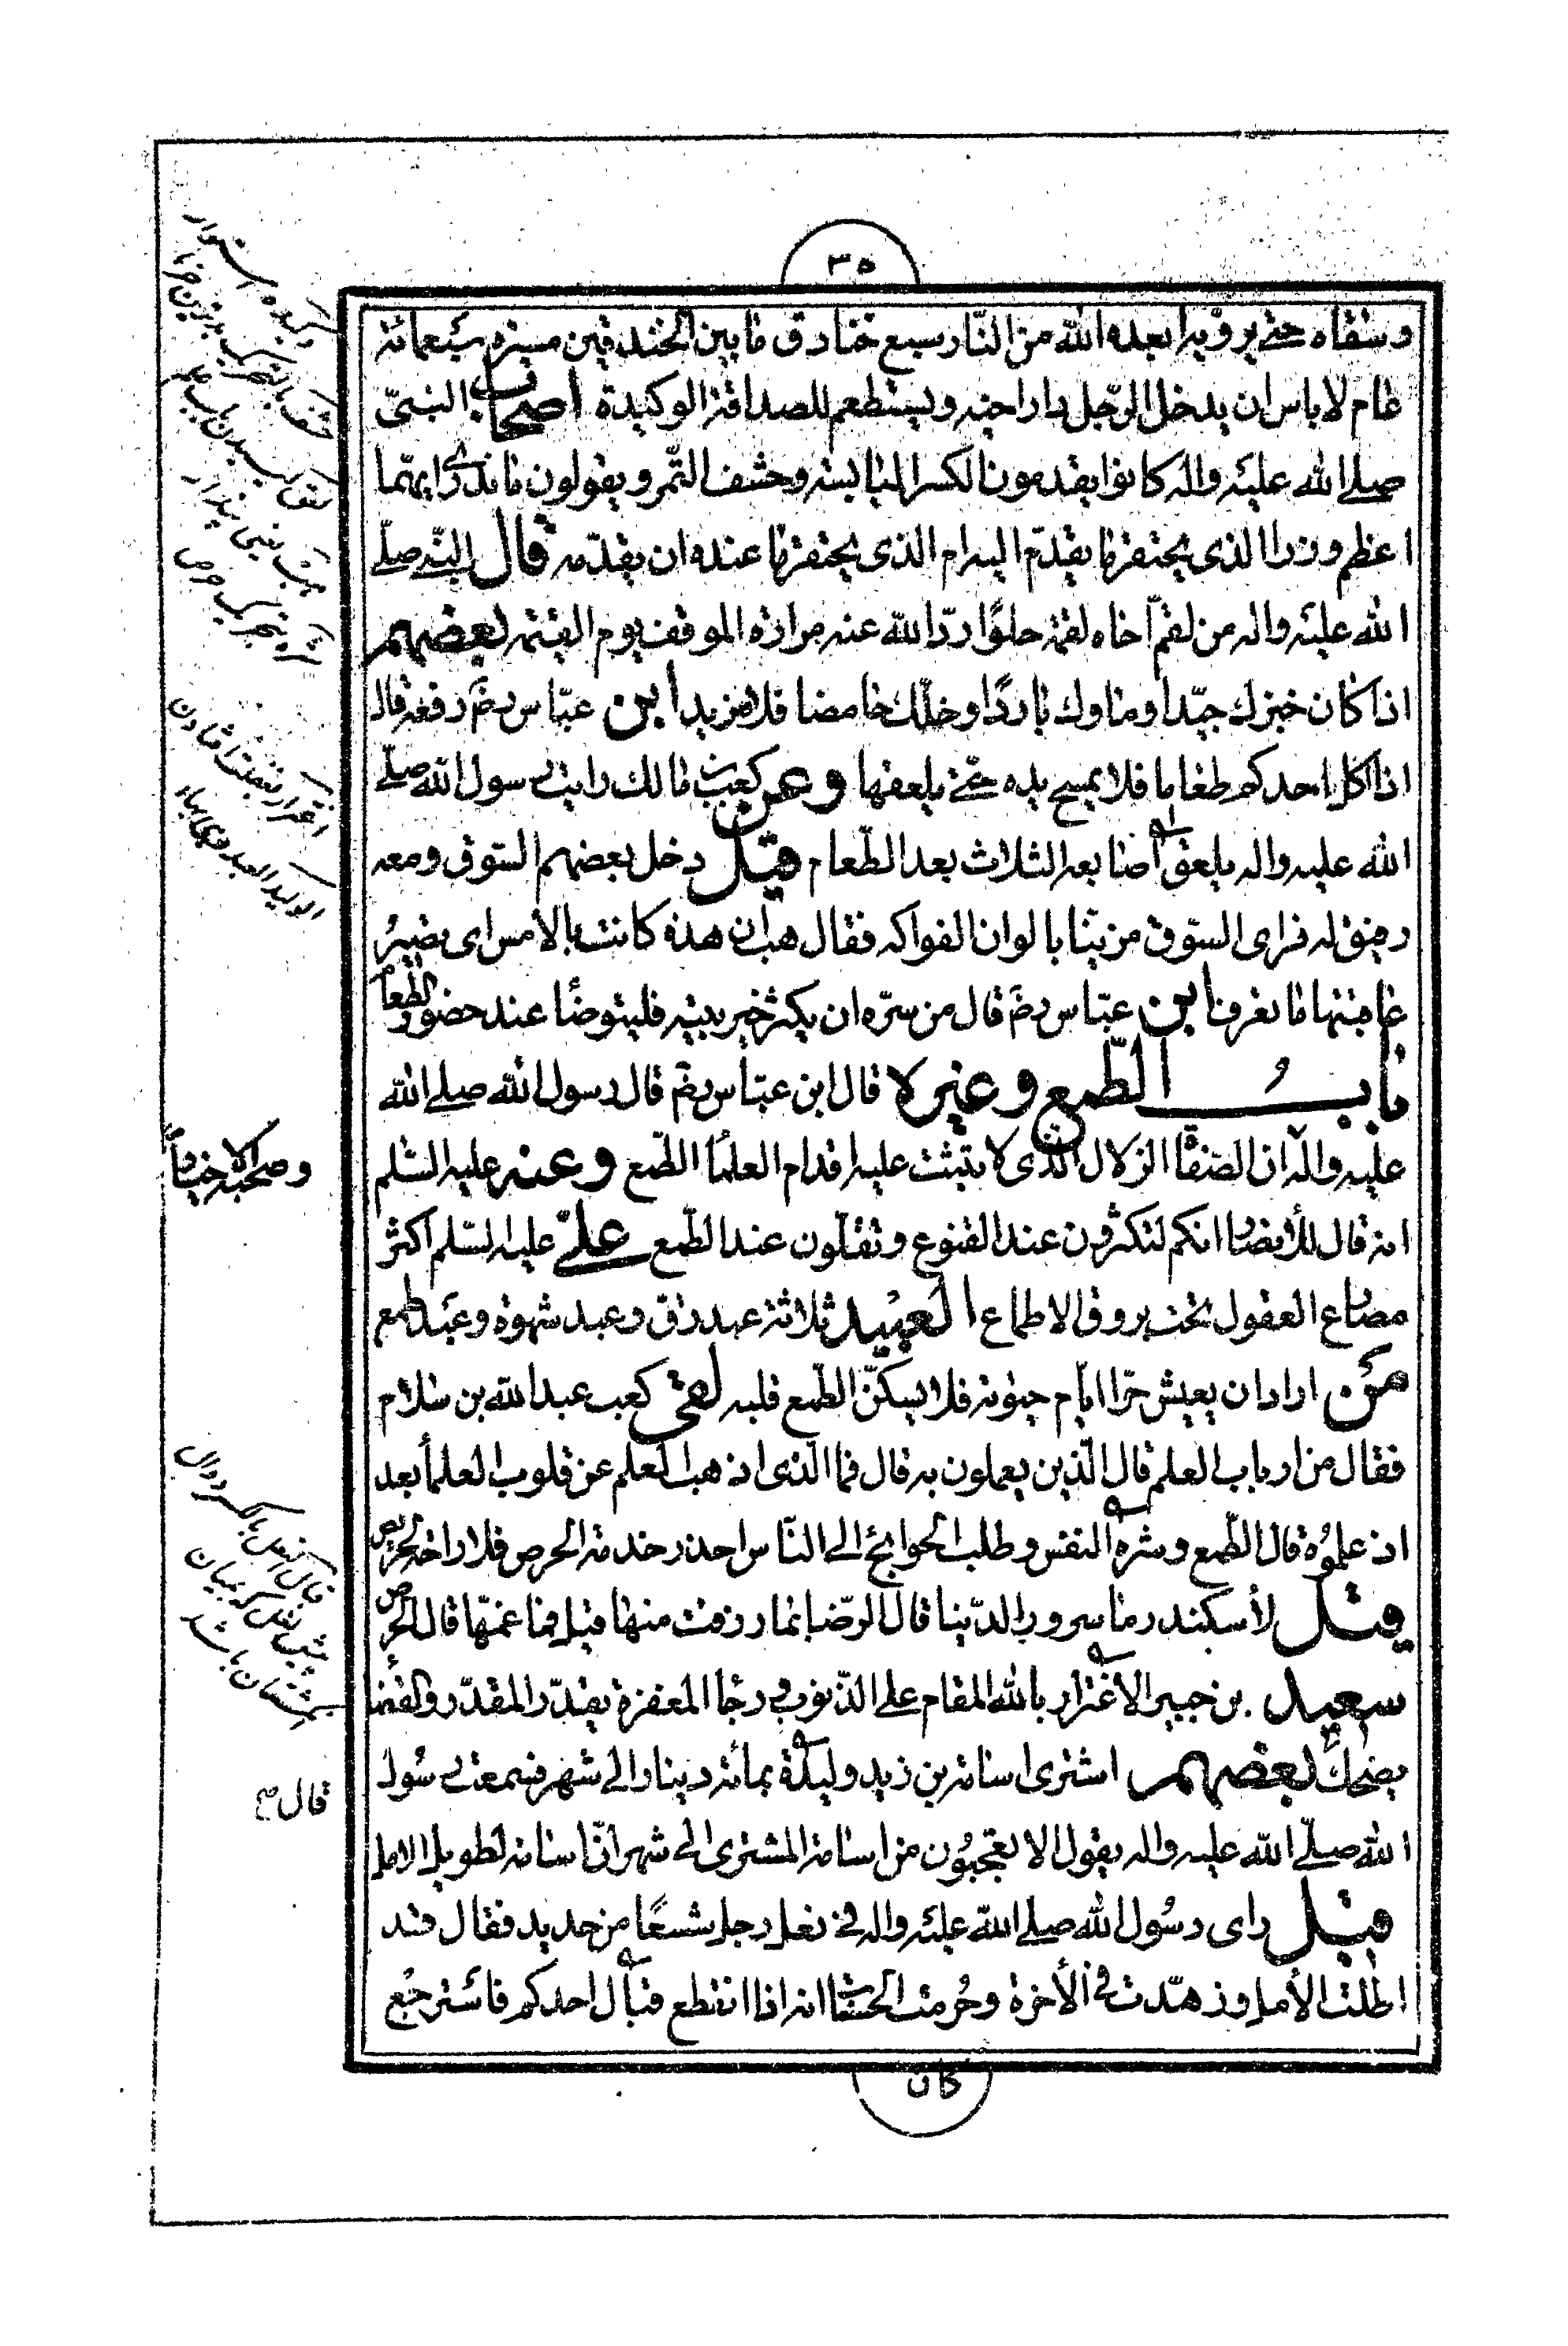 ٣٥
وسقاه حتى يرويه ابعده الله من النار سبع خنادق ما بين الخندقين مسيرة سبعمائة
عام لا باس ان يدخل الرّجل دار اخيه ويستطعم للصداقة الوكيدة اصحاب النبىّ
صلى الله عليه واله كانوا يقدمون الكسر اليابسة وحشف التّمر ويقولون ما ندرى ايهما
اعظم وزرا الذى يحتقر ما يقدّم اليه ام الذى يحتقر ما عنده ان يقدّمه قال النّبى صلّى
الله عليه واله من لقم اخاه لقمة حلوا ردّ الله عنه مرارة الموقف يوم القيمة بعضهم
اذا كان خبزك جيّدا وماوك باردًا وخلّك حامضا فلا مزيد ابن عبّاس رضَ رفعه قال
اذا اكل احدكم طعاما فلا يمسح يده حتّى يلعقها وعن كعب بن مالك رايت رسول الله صلّى
الله عليه واله يلعق اصابعه الثلاث بعد الطّعام قيل دخل بعضهم السّوق ومعه
رفيق له فراى السّوق مزيّنا بالوان الفواكه فقال هب ان هذه كانت بالأمس اى يصيرُ
عاقبتها ما تعرف ابن عبّاس رضَ قال من سرّه ان يكثر خير بيته فليتوضّأ عند حضور الطّعام
بابُ الطّمع وغيره قال ابن عبّاس رضَ قال رسول الله صلى الله
عليه واله ان الصّفا الزلال الذى لا يثبت عليه اقدام العلمأ الطّمع وعنه عليه السّلم
انه قال للأنصار انكم لتكثرون عند الفزع وتقلّون عند الطّمع علىّ عليه السّلم اكثر
مصارع العقول تحت بروق الاطماع العبيد ثلاثة عبد رق وعبد شهوة وعبد طمع
من اراد ان يعيش حرّا ايّام حيٰوته فلا يسكنّ الطّمع قلبه لقى كعب عبد الله بن سلام
فقال من ارباب العلم قال الّذين يعملون به قال فما الّذى اذهب العلم عن قلوب العلمأ بعد
اذ علموُه قال الطّمع وشره النفس وطلب الحوائج الى النّاس احذر خدمة الحرص فلا راحة لحريص
قيل لأسكندر ما سرور الدّنيا قال الرّضا بما رزقت منها قيل فما غمّها قال الحرص
سعيد بن جبير الاغترار بالله المقام على الذّنوب ورجأ المغفرة يقدّر المقدّر والقضا
يضحك بعضهم اشترى اسامة بن زيد وليدة بمائة دينار الى شهر فسمعت رسُول
الله صلّى الله عليه واله يقول الا تعجبُون من اسامة المشترى الى شهر انّ اسامة لطويل الامل
قيل راى رسُول الله صلى الله عليه واله فى نعل رجل شسعًا من حديد فقال قد
اطلت الأمل وزهّدت فى الأخرة وحُرمت الحسنات انه اذا انقطع قبال احدكم فاسترجُع
كان
قال ص